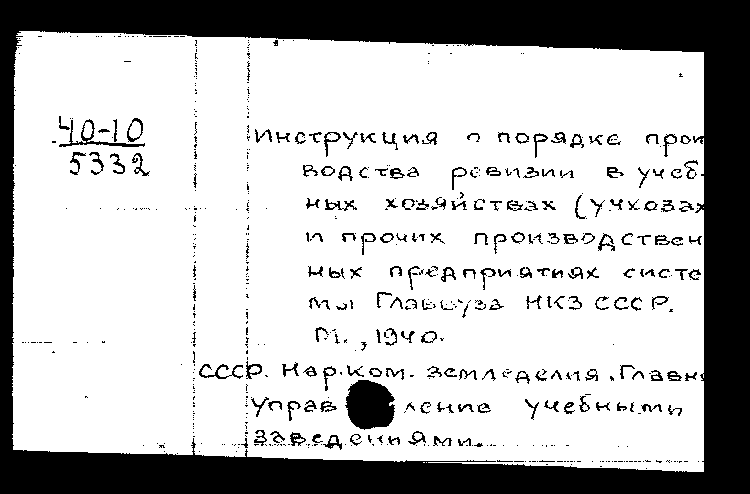 40-10
5332
Инструкция о порядке прои
водства ревизии в учеб-
ных хозяйствах (учхозах
и прочих производствен
ных предприятиях систе
мы Главвуза НКЗ СССР.
М., 1940.
СССР. Нар.ком. земледелия. Главн
управление учебными
заведениями.